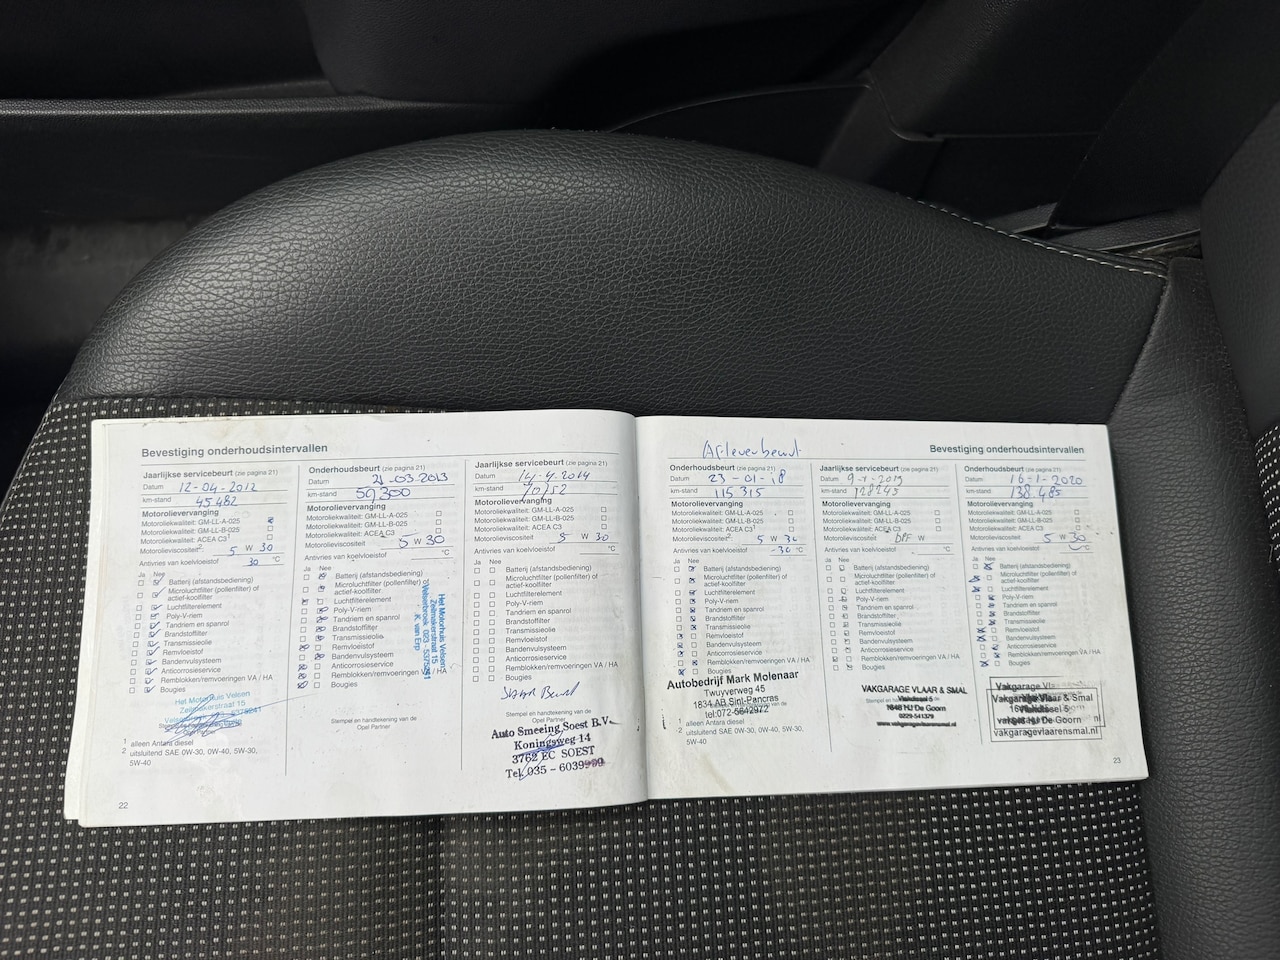 Bevestiging onderhoudsintervallen
Jaarlijkse servicebeurt (zie pagina 21)
Datum 12-04-2012
km-stand 45 482
Motorolievervanging
Motoroliekwaliteit: GM-LL-A-025
GM-LL-B-025
ACEA C3¹
Motorolieviscositeit²: 5 W 30
Antivries van koelvloeistof 30 °C
Ja Nee
Batterij (afstandsbediening)
Microluchtfilter (pollenfilter) of
actief-koolfilter
Luchtfilterelement
Poly-V-riem
Tandriem en spanrol
Brandstoffilter
Transmissieolie
Remvloeistof
Bandenvulsysteem
Anticorrosieservice
Remblokken/remvoeringen VA / HA
Bougies
Het Motorhuis Velsen
Zeilmakerstraat 15
¹ alleen Antara diesel
² uitsluitend SAE 0W-30, 0W-40, 5W-30,
5W-40
22
Onderhoudsbeurt (zie pagina 21)
Datum 21-03-2013
km-stand 59300
Motorolievervanging
Motoroliekwaliteit: GM-LL-A-025
GM-LL-B-025
ACEA C3
Motorolieviscositeit 5 W 30
Antivries van koelvloeistof °C
Ja Nee
Batterij (afstandsbediening)
Microluchtfilter (pollenfilter) of
actief-koolfilter
Luchtfilterelement
Poly-V-riem
Tandriem en spanrol
Brandstoffilter
Transmissieolie
Remvloeistof
Bandenvulsysteem
Anticorrosieservice
Remblokken/remvoeringen VA / HA
Bougies
Het Motorhuis Velsen
Zeilmakerstraat 15
K. van Erp
Stempel en handtekening van de
Opel Partner
Jaarlijkse servicebeurt (zie pagina 21)
Datum 14-4-2014
km-stand
Motorolievervanging
Motoroliekwaliteit: GM-LL-A-025
GM-LL-B-025
ACEA C3
Motorolieviscositeit 5 W 30
Antivries van koelvloeistof °C
Ja Nee
Batterij (afstandsbediening)
Microluchtfilter (pollenfilter) of
actief-koolfilter
Luchtfilterelement
Poly-V-riem
Tandriem en spanrol
Brandstoffilter
Transmissieolie
Remvloeistof
Bandenvulsysteem
Anticorrosieservice
Remblokken/remvoeringen VA / HA
Bougies
Stempel en handtekening van de
Opel Partner
Auto Smeeing Soest B.V.
Koningsweg 14
3762 EC SOEST
Tel. 035 - 6039
Afleverbeurt
Bevestiging onderhoudsintervallen
Onderhoudsbeurt (zie pagina 21)
Datum 23-01-18
km-stand 115 315
Motorolievervanging
Motoroliekwaliteit: GM-LL-A-025
GM-LL-B-025
ACEA C3¹
Motorolieviscositeit² 5 W 30
Antivries van koelvloeistof -30 °C
Ja Nee
Batterij (afstandsbediening)
Microluchtfilter (pollenfilter) of
actief-koolfilter
Luchtfilterelement
Poly-V-riem
Tandriem en spanrol
Brandstoffilter
Transmissieolie
Remvloeistof
Bandenvulsysteem
Anticorrosieservice
Remblokken/remvoeringen VA / HA
Bougies
Autobedrijf Mark Molenaar
Twuyverweg 45
1834 AB Sint-Pancras
tel:072-5642972
¹ alleen Antara diesel
² uitsluitend SAE 0W-30, 0W-40, 5W-30,
5W-40
Jaarlijkse servicebeurt (zie pagina 21)
Datum
km-stand 128245
Motorolievervanging
Motoroliekwaliteit: GM-LL-A-025
GM-LL-B-025
ACEA C3
Motorolieviscositeit DPF W
Antivries van koelvloeistof °C
Ja Nee
Batterij (afstandsbediening)
Microluchtfilter (pollenfilter) of
actief-koolfilter
Luchtfilterelement
Poly-V-riem
Tandriem en spanrol
Brandstoffilter
Transmissieolie
Remvloeistof
Bandenvulsysteem
Anticorrosieservice
Remblokken/remvoeringen VA / HA
Bougies
VAKGARAGE VLAAR & SMAL
1648 HJ De Goorn
0229-541379
www.vakgaragevlaarensmal.nl
Onderhoudsbeurt (zie pagina 21)
Datum 16-1-2020
km-stand 138.485
Motorolievervanging
Motoroliekwaliteit: GM-LL-A-025
GM-LL-B-025
ACEA C3
Motorolieviscositeit 5 W 30
Antivries van koelvloeistof °C
Ja Nee
Batterij (afstandsbediening)
Microluchtfilter (pollenfilter) of
actief-koolfilter
Luchtfilterelement
Poly-V-riem
Tandriem en spanrol
Brandstoffilter
Transmissieolie
Remvloeistof
Bandenvulsysteem
Anticorrosieservice
Remblokken/remvoeringen VA / HA
Bougies
Vakgarage Vlaar & Smal
HJ De Goorn
vakgaragevlaarensmal.nl
23